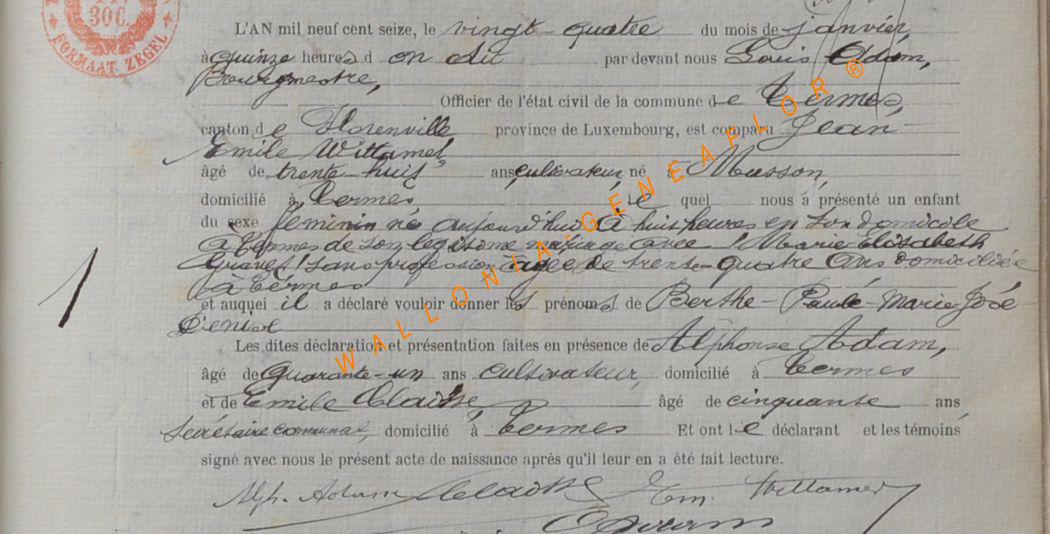 30C.
FORMAAT ZEGEL
L'AN mil neuf cent seize, le vingt-quatre du mois de janvier,
à quinze heures d on du par devant nous Louis Adam,
Bourgmestre,
Officier de l'état civil de la commune de Termes,
canton de Florenville, province de Luxembourg, est comparu Jean
Emile Willamet,
âgé de trente-huit ans, cultivateur, né à Musson,
domicilié à Termes, le quel nous a présenté un enfant
du sexe féminin né aujourd'hui à huit heures en son domicile
à Termes de son légitime mariage avec Marie Elisabeth
sans profession agée de trente-quatre ans domiciliée
à Termes
et auquel il a déclaré vouloir donner les prénoms de Berthe-Paule-Marie José
Les dites déclaration et présentation faites en présence de Alphonse Adam,
âgé de quarante-un ans cultivateur, domicilié à Termes
et de Emile Claisse, âgé de cinquante ans
Secrétaire communal, domicilié à Termes Et ont le déclarant et les témoins
signé avec nous le présent acte de naissance après qu'il leur en a été fait lecture.
Alph. Adam Claisse Em. Willamet
1
WALLONIA-GENEAFLOR®